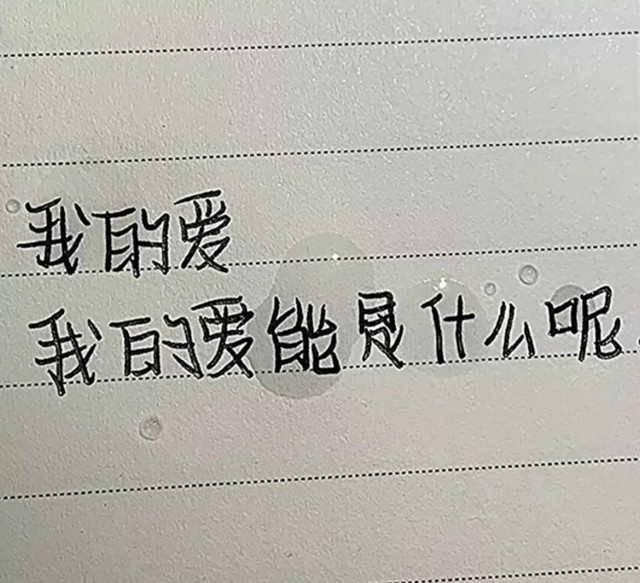 我的爱
我的爱能是什么呢